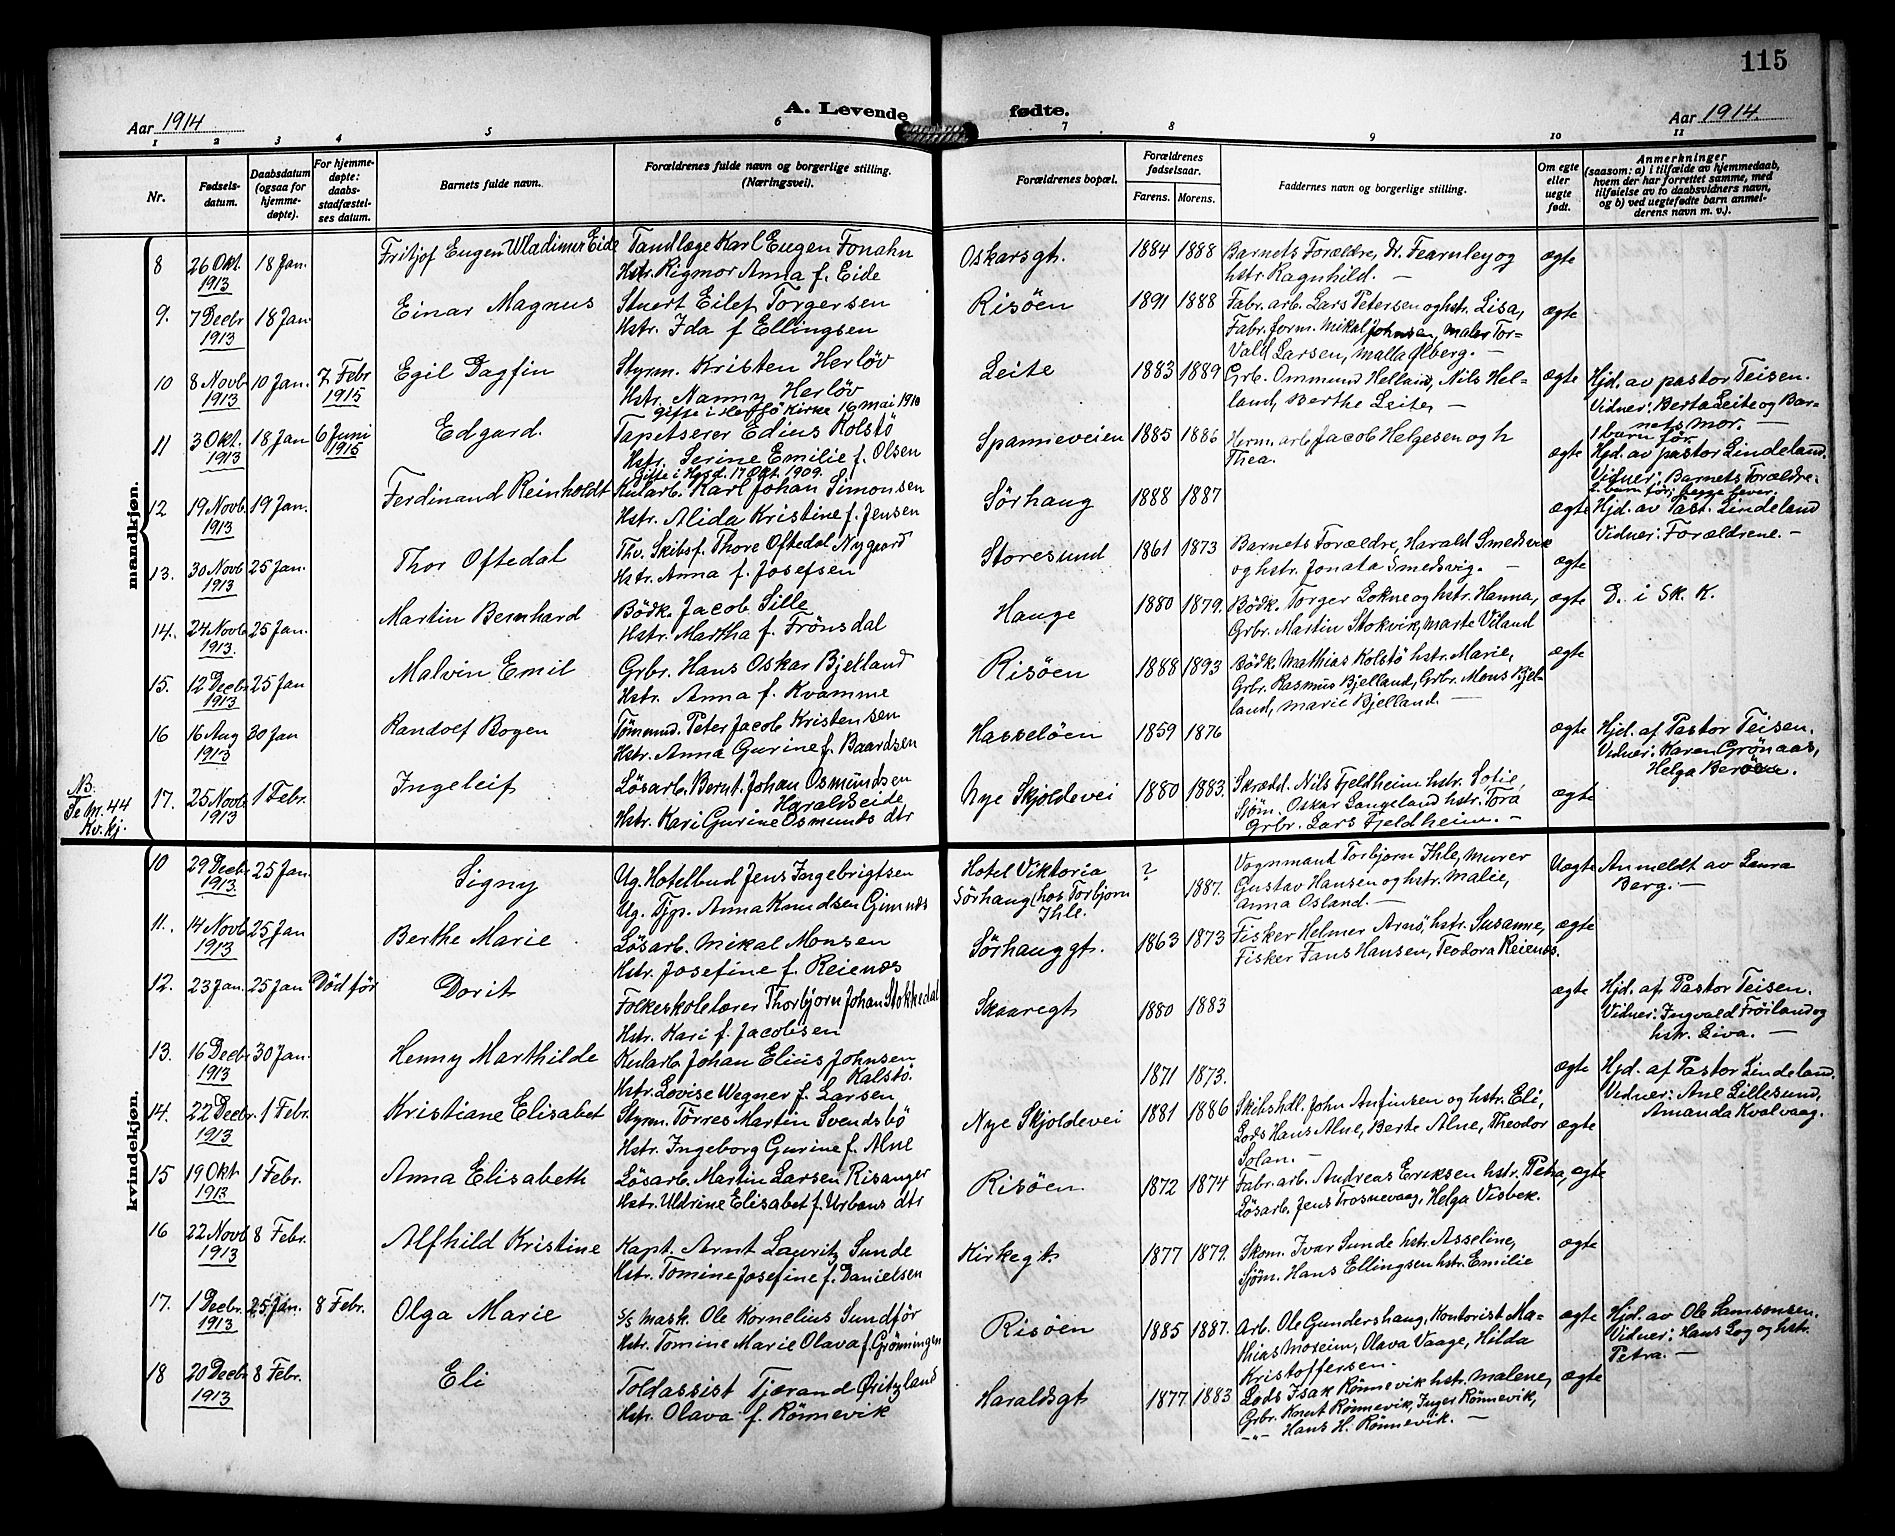 115
Aar 1914
A. Levende fødte.
Aar 1914.
1 2 3 4 5 6 7 8 9 10 11
Nr.
Fødsels-
datum.
Daabsdatum
(ogsaa for
hjemme-
døpte).
For hjemme-
døpte:
daabs-
stadfæstel-
ses datum.
Barnets fulde navn.
Forældrenes fulde navn og borgerlige stilling.
(Næringsvei).
Forældrenes bopæl.
Forældrenes
fødselsaar.
Farens. Morens.
Faddernes navn og borgerlige stilling.
Om egte
eller
uegte
født.
Anmerkninger
(saasom: a) i tilfælde av hjemmedaab,
hvem der har forrettet samme, med
tilføielse av to daabsvidners navn,
og b) ved uegtefødte barn anmel-
derens navn m. v.).
mandkjøn.
8 26 Okt. 1913 18 Jan. Fritjof Eugen Wladimir Eide
Tandlæge Karl Eugen Fonahn
Hstr. Rigmor Anna f. Eide
Oskarsgt. 1884 1888
Barnets Forældre, Dr. Fearnley og
hstr. Ragnhild. —
ægte
9. 7 Decbr 1913 18 Jan. Einar Magnus
Stuert Eilef Torgersen
Hstr. Ida f. Ellingsen
Risöen 1891 1888
Fabr. arb. Lars Petersen og hstr. Lisa,
Fabr. form. Mikal Johnsen, Maler Tor-
vald Larsen, Malla Ølberg. —
ægte
10 8 Novb. 1913 10 Jan. 7 Febr 1915 Egil Dagfin
Styrm. Kristen Herlöv
Hstr. Nanny Herlöv
Leite 1883 1889
Grb. Ommund Helland, Nils Hel-
land, Berthe Leite, —
ægte
Hjd. av pastor Teisen.
Vidner: Berta Leite og Bar-
nets mor. —
11 3 Okt. 1913 18 Jan 6 Juni 1915 Edgard.
Tapetserer Edius Kolstö
Hstr. Serine Emilie f. Olsen
Spanneveien 1885 1886
Herm. arb. Jacob Helgesen og h
Thea.
ægte
1 barn før.
Hjd. av pastor Lindeland.
Vidner: Barnets Forældre.
12 19 Novb. 1913 19 Jan. Ferdinand Reinholdt
Gifte i Hgsd. 17 Okt. 1909.
Kularb. Karl Johan Simonsen
Hstr. Alida Kristine f. Jensen
Sörhaug 1888 1887
ægte
Hjd. av Past. Lindeland
Vidner: Forældrene. —
13. 30 Novb 1913 25 Jan. Thor Oftedal
Thv. Skibsf. Thore Oftedal Nygaard
Hstr. Anna f. Josefsen
Storesund 1861 1873
Barnets Forældre, Harald Smedsvik
og hstr. Jonata Smedsvig. —
ægte
14. 24 Novb 1913. 25 Jan. Martin Bernhard
Bödk. Jacob Lille
Hstr. Martha f. Frönsdal
Hauge 1880 1879.
Bödk. Torger Lokne og hstr. Hanna,
Grbr. Martin Stokvik, Marte Viland
ægte
D. i Sk. K.
15. 12 Decbr 1913 25 Jan Malvin Emil
Grbr. Hans Oskar Bjelland
Hstr. Anna f. Kvamme
Risöen 1888 1893
Bödk. Mathias Kolstö hstr. Marie,
Grbr. Rasmus Bjelland, Grbr. Mons Bjel-
land, Marie Bjelland. —
ægte
16 16 Aug 1913 30 Jan Randolf Bogen
Tömmd. Peter Jacob Kristensen
Hstr. Anna Gurine f. Baardsen
Hasselöen 1859 1876
ægte
Hjd. af Pastor Teisen.
Vidner: Karen Grönaas,
NB.
Se Nr. 44
Kv. kj.
17. 25 Novb 1913 1 Febr. Ingeleif
Lösarb. Bernt Johan Osmundsen
Haraldseide
Hstr. Kari Gurine Osmunds dtr
Nye Skjoldevei 1880 1883.
Skrædd. Nils Fjeldheim hstr. Sofie,
Sjöm. Oskar Langeland hstr. Tora
Grbr. Lars Fjeldheim. —
ægte
kvindekjøn.
10 29 Decbr 1913 25 Jan. Signy
Ug. Hotelbud Jens Ingebrigtsen
Ug. Tjp. Anna Knudsen Gimnæs
Hotel Viktoria
Sörhaug (hos Torbjørn
Ihle. ? 1887.
Vognmand Torbjørn Ihle, Murer
Gustav Hansen og hstr. Malie,
Anna Osland. —
Uægte
Anmeldt av Laura
Berg. —
11. 14 Novb 1913 25 Jan Berthe Marie
Lösarb. Mikal Monsen
Hstr. Josefine f. Reienæs
Sörhauggt. 1863 1873
Fisker Helmer Arnö, hstr. Susanne,
Fisker Fans Hansen, Teodora Reienæs.
ægte
12. 23 Jan. 25 Jan Död för Dorit
Folkeskolelærer Thorbjørn Johan Stokkedal
Hstr. Kari f. Jacobsen
Skaaregt 1880 1883
ægte
Hjd. af Pastor Teisen.
Vidner: Ingvald Fröiland og
hstr. Liva. —
13. 16 Decbr 1913 30 Jan. Henny Marthilde
Kularb. Johan Elius Johnsen
Kalstö.
Hstr. Lovise Wegner f. Larsen
1871 1873.
ægte
Hjd. af Pastor Lindeland.
Vidner: Ane Lillesund,
Amanda Kvalvaag.
14. 22 Decbr. 1913 1 Febr. Kristiane Elisabet
Styrm. Törres Martin Svendsbö
Hstr. Ingeborg Gurine f. Alne
Nye Skjoldevei 1881 1886
Skibshdl. John Anfinsen og hstr. Eli,
Lods Hans Alne, Berte Alne, Theodor
Solan. —
ægte
15 19 Okt 1913 1 Febr. Anna Elisabeth
Lösarb. Martin Larsen Risanger
Hstr. Uldrine Elisabet f. Urbans dtr
Risöen 1872 1874
Fabr. arb. Andreas Eriksen hstr. Petra,
Lösarb. Jens Trosnevaag, Helga Visbek.
ægte
16 22 Novb 1913 8 Febr. Alfhild Kristine
Kapt. Arnt Lauritz Sunde
Hstr. Tomine Josefine f. Danielsen
Kirkegt. 1877 1879.
Skom. Ivar Sunde hstr. Asseline,
Sjöm. Hans Ellingsen hstr. Emilie
ægte
17. 1 Decbr. 1913 25 Jan. 8 Febr. Olga Marie
S/S mask. Ole Kornelius Sundför
Hstr. Tomine Marie Olava f. Grönningen
Risöen 1885 1887.
Arb. Ole Gundershaug, Kontorist Ma-
thias Moxeim, Olava Vaage, Hilda
Kristoffersen.
ægte
Hjd. av Ole Samsonsen.
Vidner: Hans Log og hstr.
Petra. —
18 20 Decbr 1913 8 Febr. Eli
Toldassist Tjerand Øritsland
Hstr. Olava f. Rönnevik
Haraldsgt 1877 1883
Lods Isak Rönnevik hstr. Malene,
Grbr. Knut Rönnevik, Inger Rönnevik,
—"— Hans H. Rönnevik. —
ægte